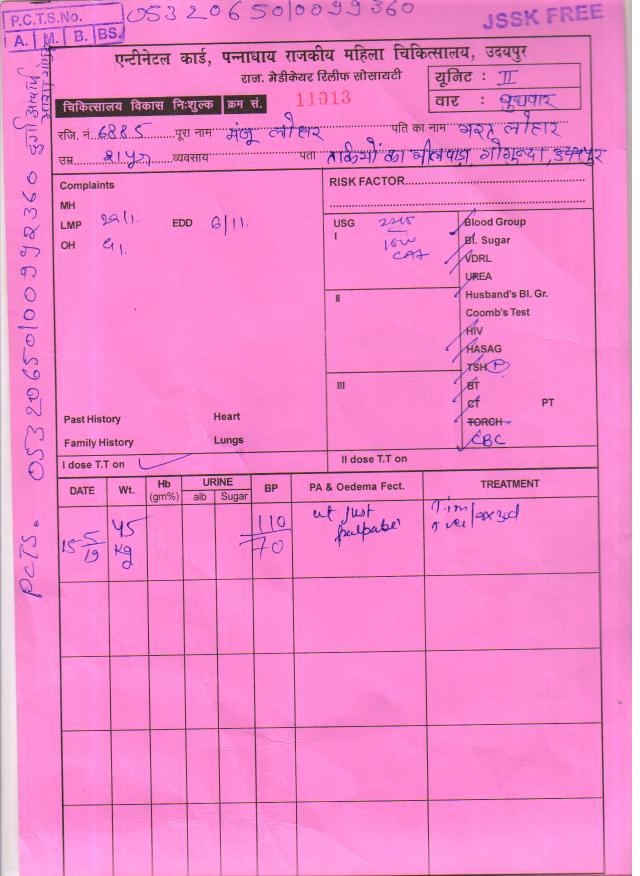 P.C.T.S.No. 0532065010099360
A. M. B. BS.
JSSK FREE
एन्टीनेटल कार्ड, पन्नाधाय राजकीय महिला चिकित्सालय, उदयपुर
राज. मेडीकेयर रिलीफ सोसायटी
यूनिट : II
चिकित्सालय विकास निःशुल्क क्रम सं. 11013
वार : बुधवार
रजि. नं. 6885 पूरा नाम मंजू लौहार पति का नाम भरत लौहार
उम्र व्यवसाय पता का गोगुन्दा, उदयपुर
PCTS.
Complaints
RISK FACTOR
MH
LMP 29/1. EDD 6/11.
OH
USG
I
Blood Group
Bl. Sugar
VDRL
UREA
II
Husband's Bl. Gr.
Coomb's Test
HIV
HASAG
TSH P
III
BT
CT PT
TORCH
CBC
Past History Heart
Family History Lungs
I dose T.T on II dose T.T on
DATE Wt. Hb (gm%) URINE alb Sugar BP PA & Oedema Fect. TREATMENT
15-5/19 45 kg 110/70 ut just palpable